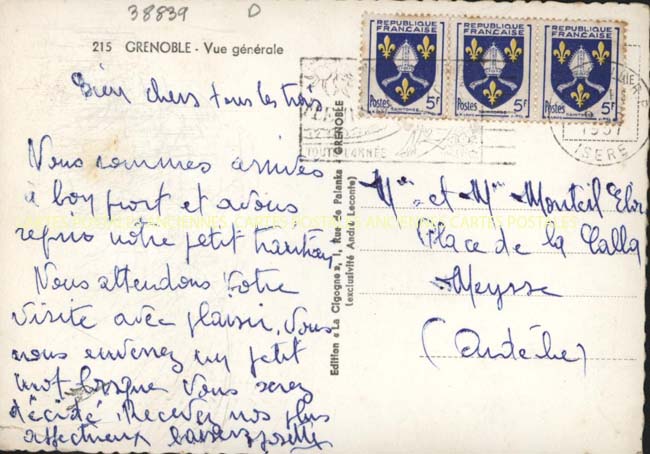 38839 D
215 GRENOBLE - Vue générale
Bien chers tous les trois
Nous sommes arrivés
à bon port et avons
repris notre petit traintrain
Nous attendons votre
visite avec plaisir. Vous
nous enverrez un petit
mot lorsque vous serez
décidé. Recevez nos plus
affectueux baisers Josette
Edition « La Cigogne », 1, Rue de Palanka - GRENOBLE
(exclusivité André Leconte)
REPUBLIQUE FRANÇAISE
Postes 5F
SAINTONGE
REPUBLIQUE FRANÇAISE
Postes 5F
SAINTONGE
REPUBLIQUE FRANÇAISE
Postes 5F
SAINTONGE
TOUTE L'ANNÉE
ISERE
Mr et Mme Monteil
Place de la
Meysse
(Ardèche)
CARTES POSTALES ANCIENNES CARTES POSTALES ANCIENNES CARTES POSTALES